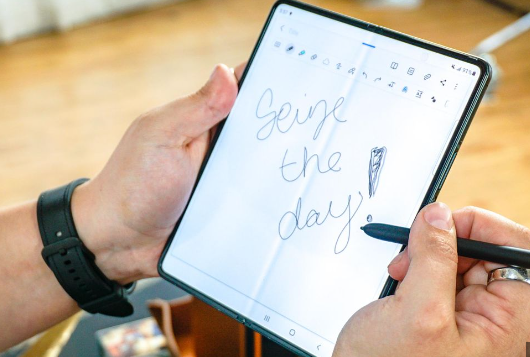 Seize
the
day!